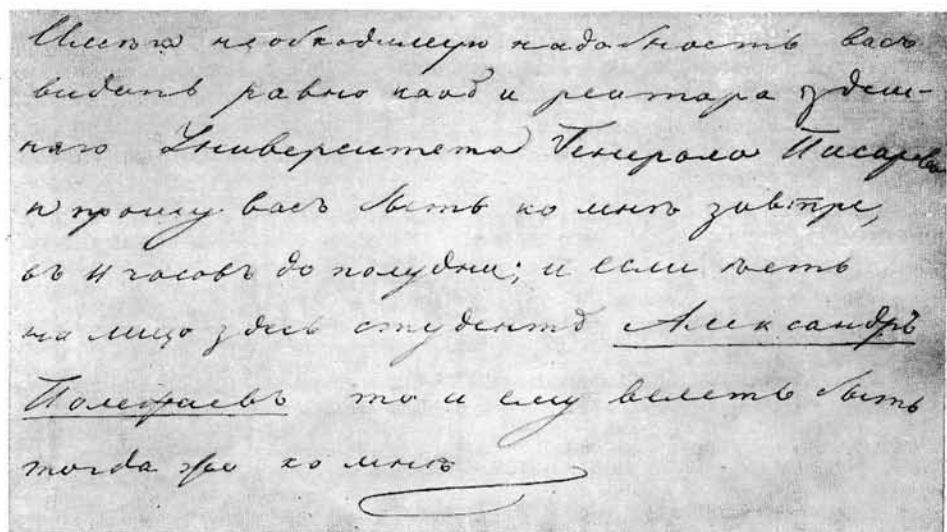 Имѣя необходимую надобность васъ
видѣть равно какъ и ректора здѣш-
няго Университета Генерала Писарева
я прошу васъ быть ко мнѣ завтре,
въ 11 часовъ до полудни; и если есть
на лицо здѣсь студентъ Александръ
Полежаевъ то и ему велеть быть
тогда же ко мнѣ